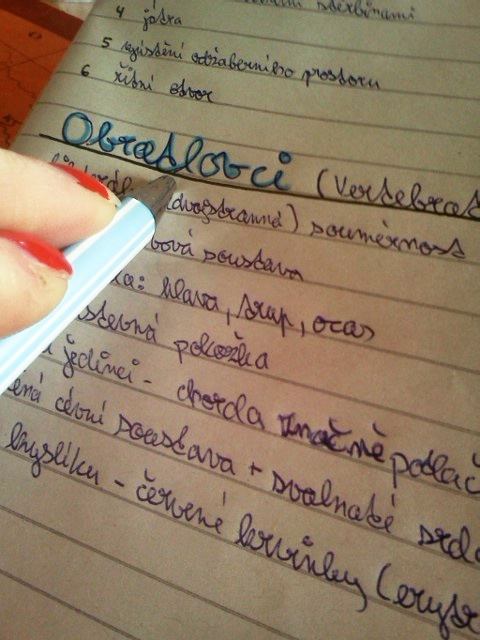 4 játra
5 vyústění obžaberního prostoru
6 řitní otvor
Obratlovci (Vertebrat
(dvoustranná) souměrnost
bová soustava
la: hlava, trup, ocas
stevná pokožka
jedinci - chorda značně potlač
ená cévní soustava + svalnaté srdc
kyslíku - červené krvinky (erytr